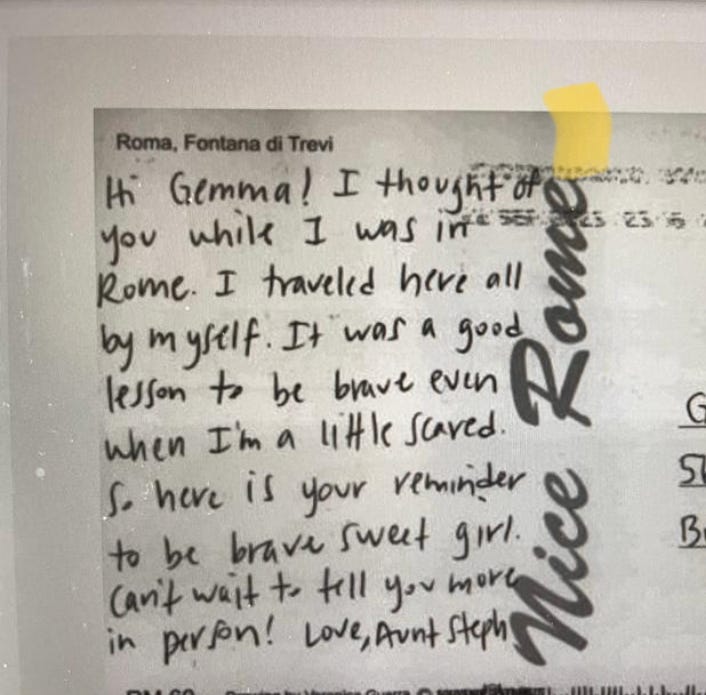 Roma, Fontana di Trevi
Hi Gemma! I thought of
you while I was in
Rome. I traveled here all
by myself. It was a good
lesson to be brave even
when I'm a little scared.
So here is your reminder
to be brave sweet girl.
Can't wait to tell you more
in person! Love, Aunt Steph
Nice Rome